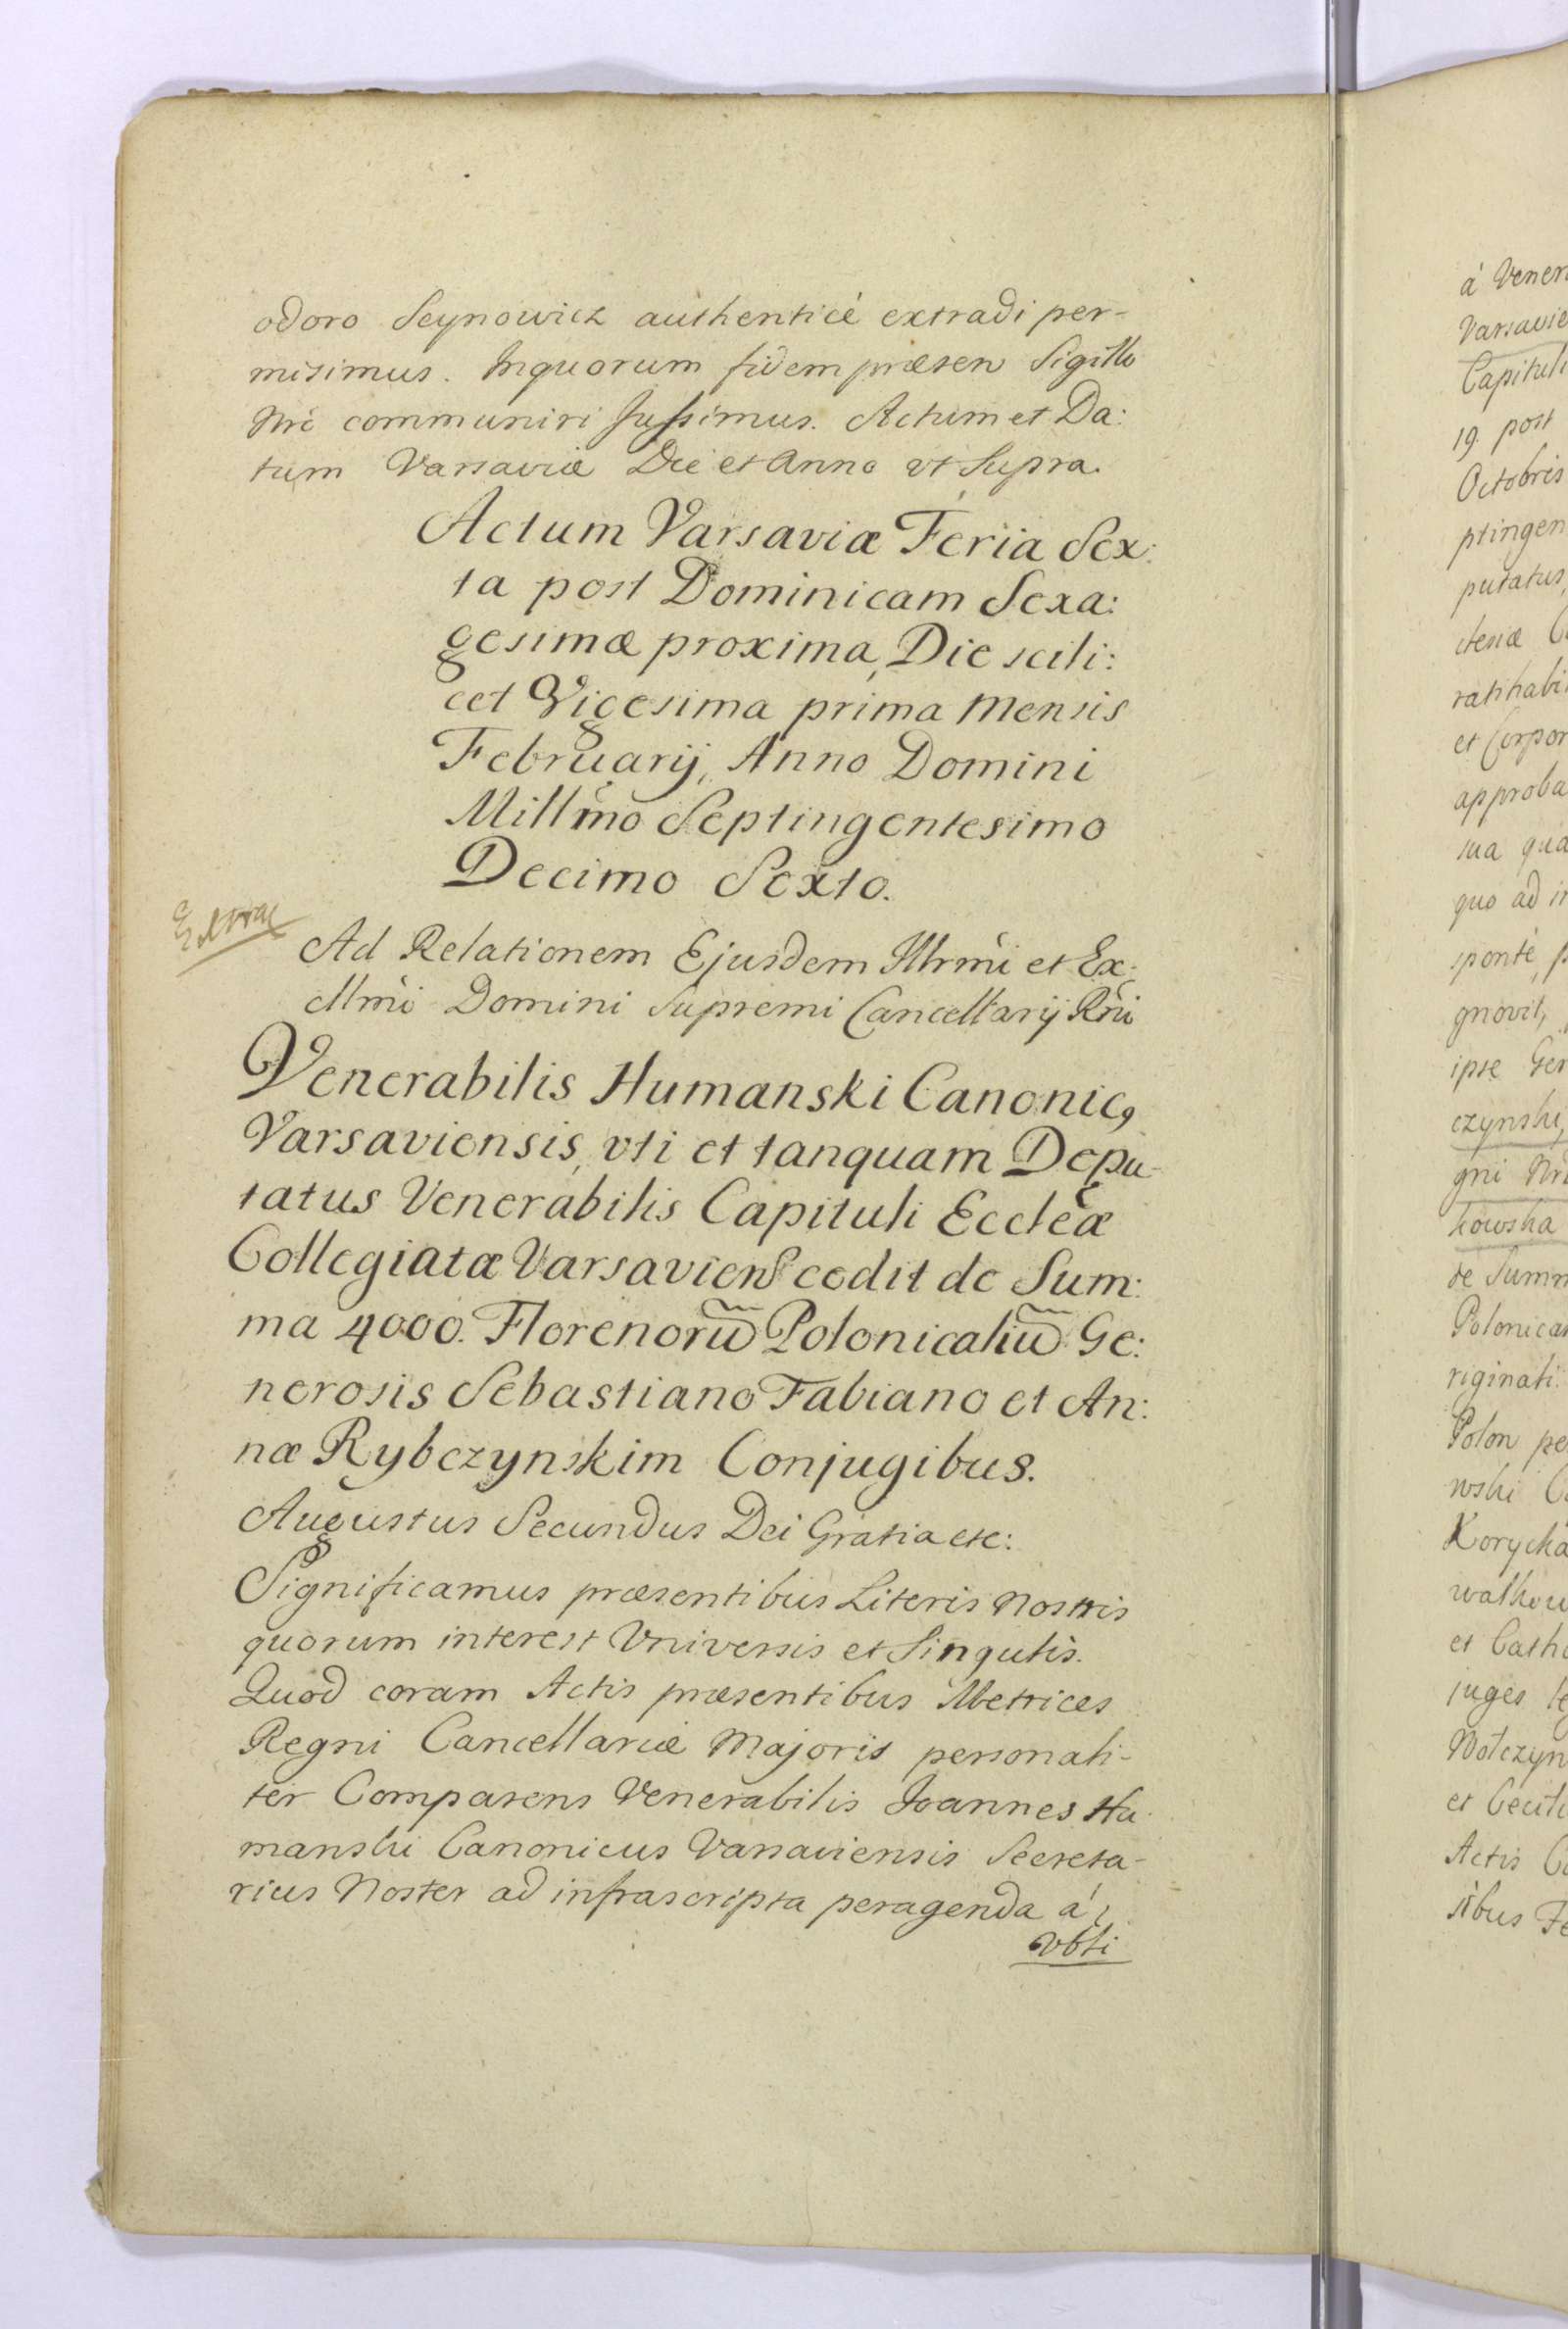 odoro Seynowicz authenticè extradi per-
misimus. Inquorum fidem præsen Sigillo
Nrõ communiri Jussimus. Actum et Da:
tum Varsaviæ Die et Anno vt Supra.
Actum Varsaviæ Feria Sex:
ta post Dominicam Sexa:
gesimæ proxima, Die scili:
cet Vigesima prima Mensis
Februarij, Anno Domini
Millm̃o Septingentesimo
Decimo Sexto.
Ad Relationem Ejusdem Illrmi et Ex:
cllmi Domini Supremi Cancellarij Rni
Venerabilis Humanski Canonicꝯ
Varsaviensis, vti et tanquam Depu-
tatus Venerabilis Capituli Eccleæ
Collegiatæ Varsavien cedit de Sum:
ma 4000. Florenorũ Polonicaliũ Ge:
nerosis Sebastiano Fabiano et An:
næ Rybczynskim Conjugibus.
Augustus Secundus Dei Gratia etc:
Significamus præsentibus Literis Nostris
quorum interest Vniversis et Singulis.
Quod coram Actis præsentibus Metrices
Regni Cancellariæ Majoris personali-
ter Comparens Venerabilis Joannes Hu-
manski Canonicus Varsaviensis Secreta-
rius Noster ad infrascripta peragenda á
vbli
á Vener
Varsavie
Capituli
19. post
Octobris
ptingen
putatus,
clesiæ C
ratihabi
et Corpor
approba
sua qua
quo ad in
sponte, p
gnovit,
ipse Gen
czynski,
gni Nr
kowska
de Summ
Polonica
riginali
Polon pe
wski C
Korycka
walkow
et Catha
juges le
Wolczyn
et Cecili
Actis C
sibus Fe